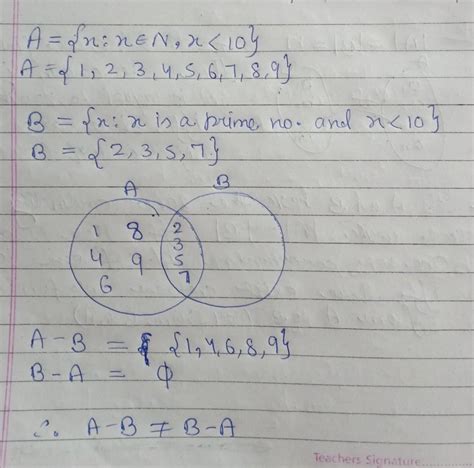 A = {x : x ∈ N, x < 10}
A = {1, 2, 3, 4, 5, 6, 7, 8, 9}
B = {x : x is a prime no. and x < 10}
B = {2, 3, 5, 7}
A B
1 8 2
3
4 9 5
6 7
A - B = {1, 4, 6, 8, 9}
B - A = ϕ
∴ A - B ≠ B - A
Teachers Signature